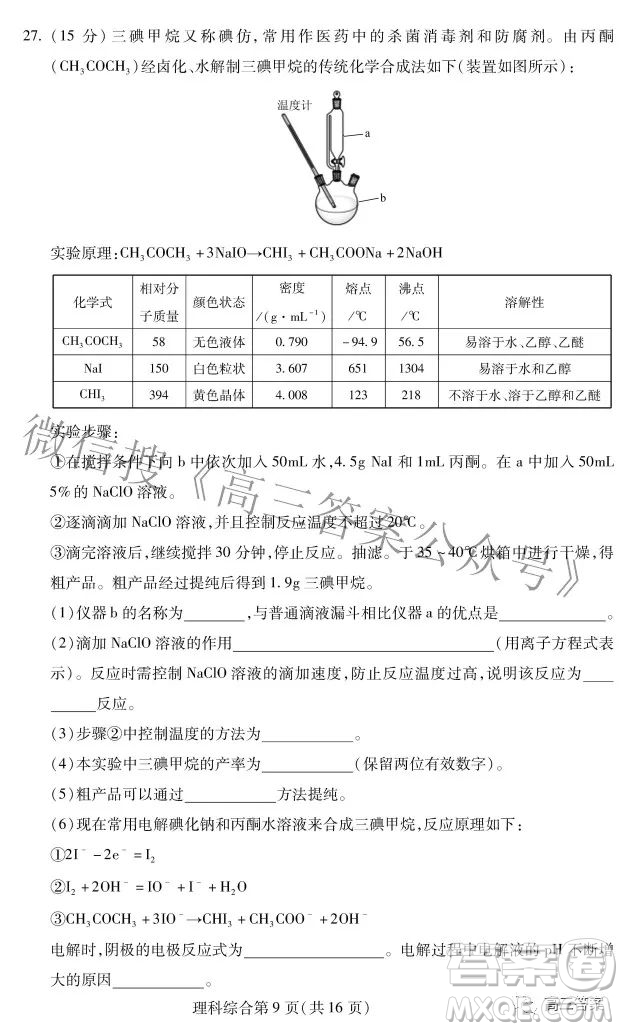 27. (15 分)三碘甲烷又称碘仿,常用作医药中的杀菌消毒剂和防腐剂。由丙酮
(CH₃COCH₃)经卤化、水解制三碘甲烷的传统化学合成法如下(装置如图所示):
温度计
a
b
实验原理:CH₃COCH₃+3NaIO→CHI₃+CH₃COONa+2NaOH
化学式 相对分子质量 颜色状态 密度/(g·mL⁻¹) 熔点/℃ 沸点/℃ 溶解性
CH₃COCH₃ 58 无色液体 0.790 -94.9 56.5 易溶于水、乙醇、乙醚
NaI 150 白色粒状 3.607 651 1304 易溶于水和乙醇
CHI₃ 394 黄色晶体 4.008 123 218 不溶于水、溶于乙醇和乙醚
实验步骤:
①在搅拌条件下向 b 中依次加入 50mL 水,4.5g NaI 和 1mL 丙酮。在 a 中加入 50mL
5%的 NaClO 溶液。
②逐滴滴加 NaClO 溶液,并且控制反应温度不超过 20℃。
③滴完溶液后,继续搅拌 30 分钟,停止反应。抽滤。于 35~40℃烘箱中进行干燥,得
粗产品。粗产品经过提纯后得到 1.9g 三碘甲烷。
(1)仪器 b 的名称为________,与普通滴液漏斗相比仪器 a 的优点是__________。
(2)滴加 NaClO 溶液的作用________________________(用离子方程式表
示)。反应时需控制 NaClO 溶液的滴加速度,防止反应温度过高,说明该反应为___
____反应。
(3)步骤②中控制温度的方法为_________。
(4)本实验中三碘甲烷的产率为_________(保留两位有效数字)。
(5)粗产品可以通过_________方法提纯。
(6)现在常用电解碘化钠和丙酮水溶液来合成三碘甲烷,反应原理如下:
①2I⁻-2e⁻=I₂
②I₂+2OH⁻=IO⁻+I⁻+H₂O
③CH₃COCH₃+3IO⁻→CHI₃+CH₃COO⁻+2OH⁻
电解时,阴极的电极反应式为_____________。电解过程中电解液的 pH 不断增
大的原因_________。
理科综合第 9 页(共 16 页)
微信搜《高三答案公众号》
高三答案
MXQE.COM